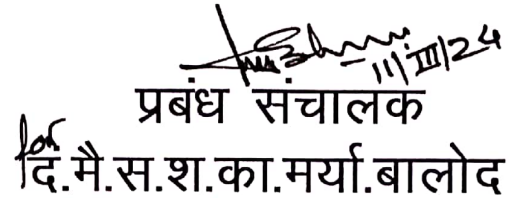 11/III/24
प्रबंध संचालक
for
दि.मै.स.श.का.मर्या.बालोद